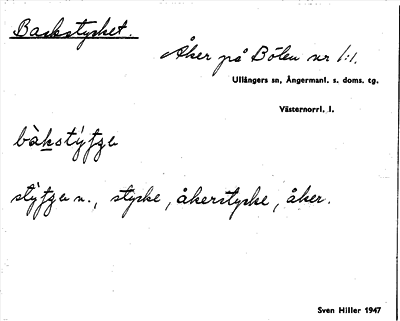 Backstycket.
Åker på Bölen nr 1:1.
Ullångers sn, Ångermanl. s. doms. tg.
Västernorrl. l.
bàkstýʃʒa
stýʃʒa n., stycke, åkerstycke, åker.
Sven Hiller 1947